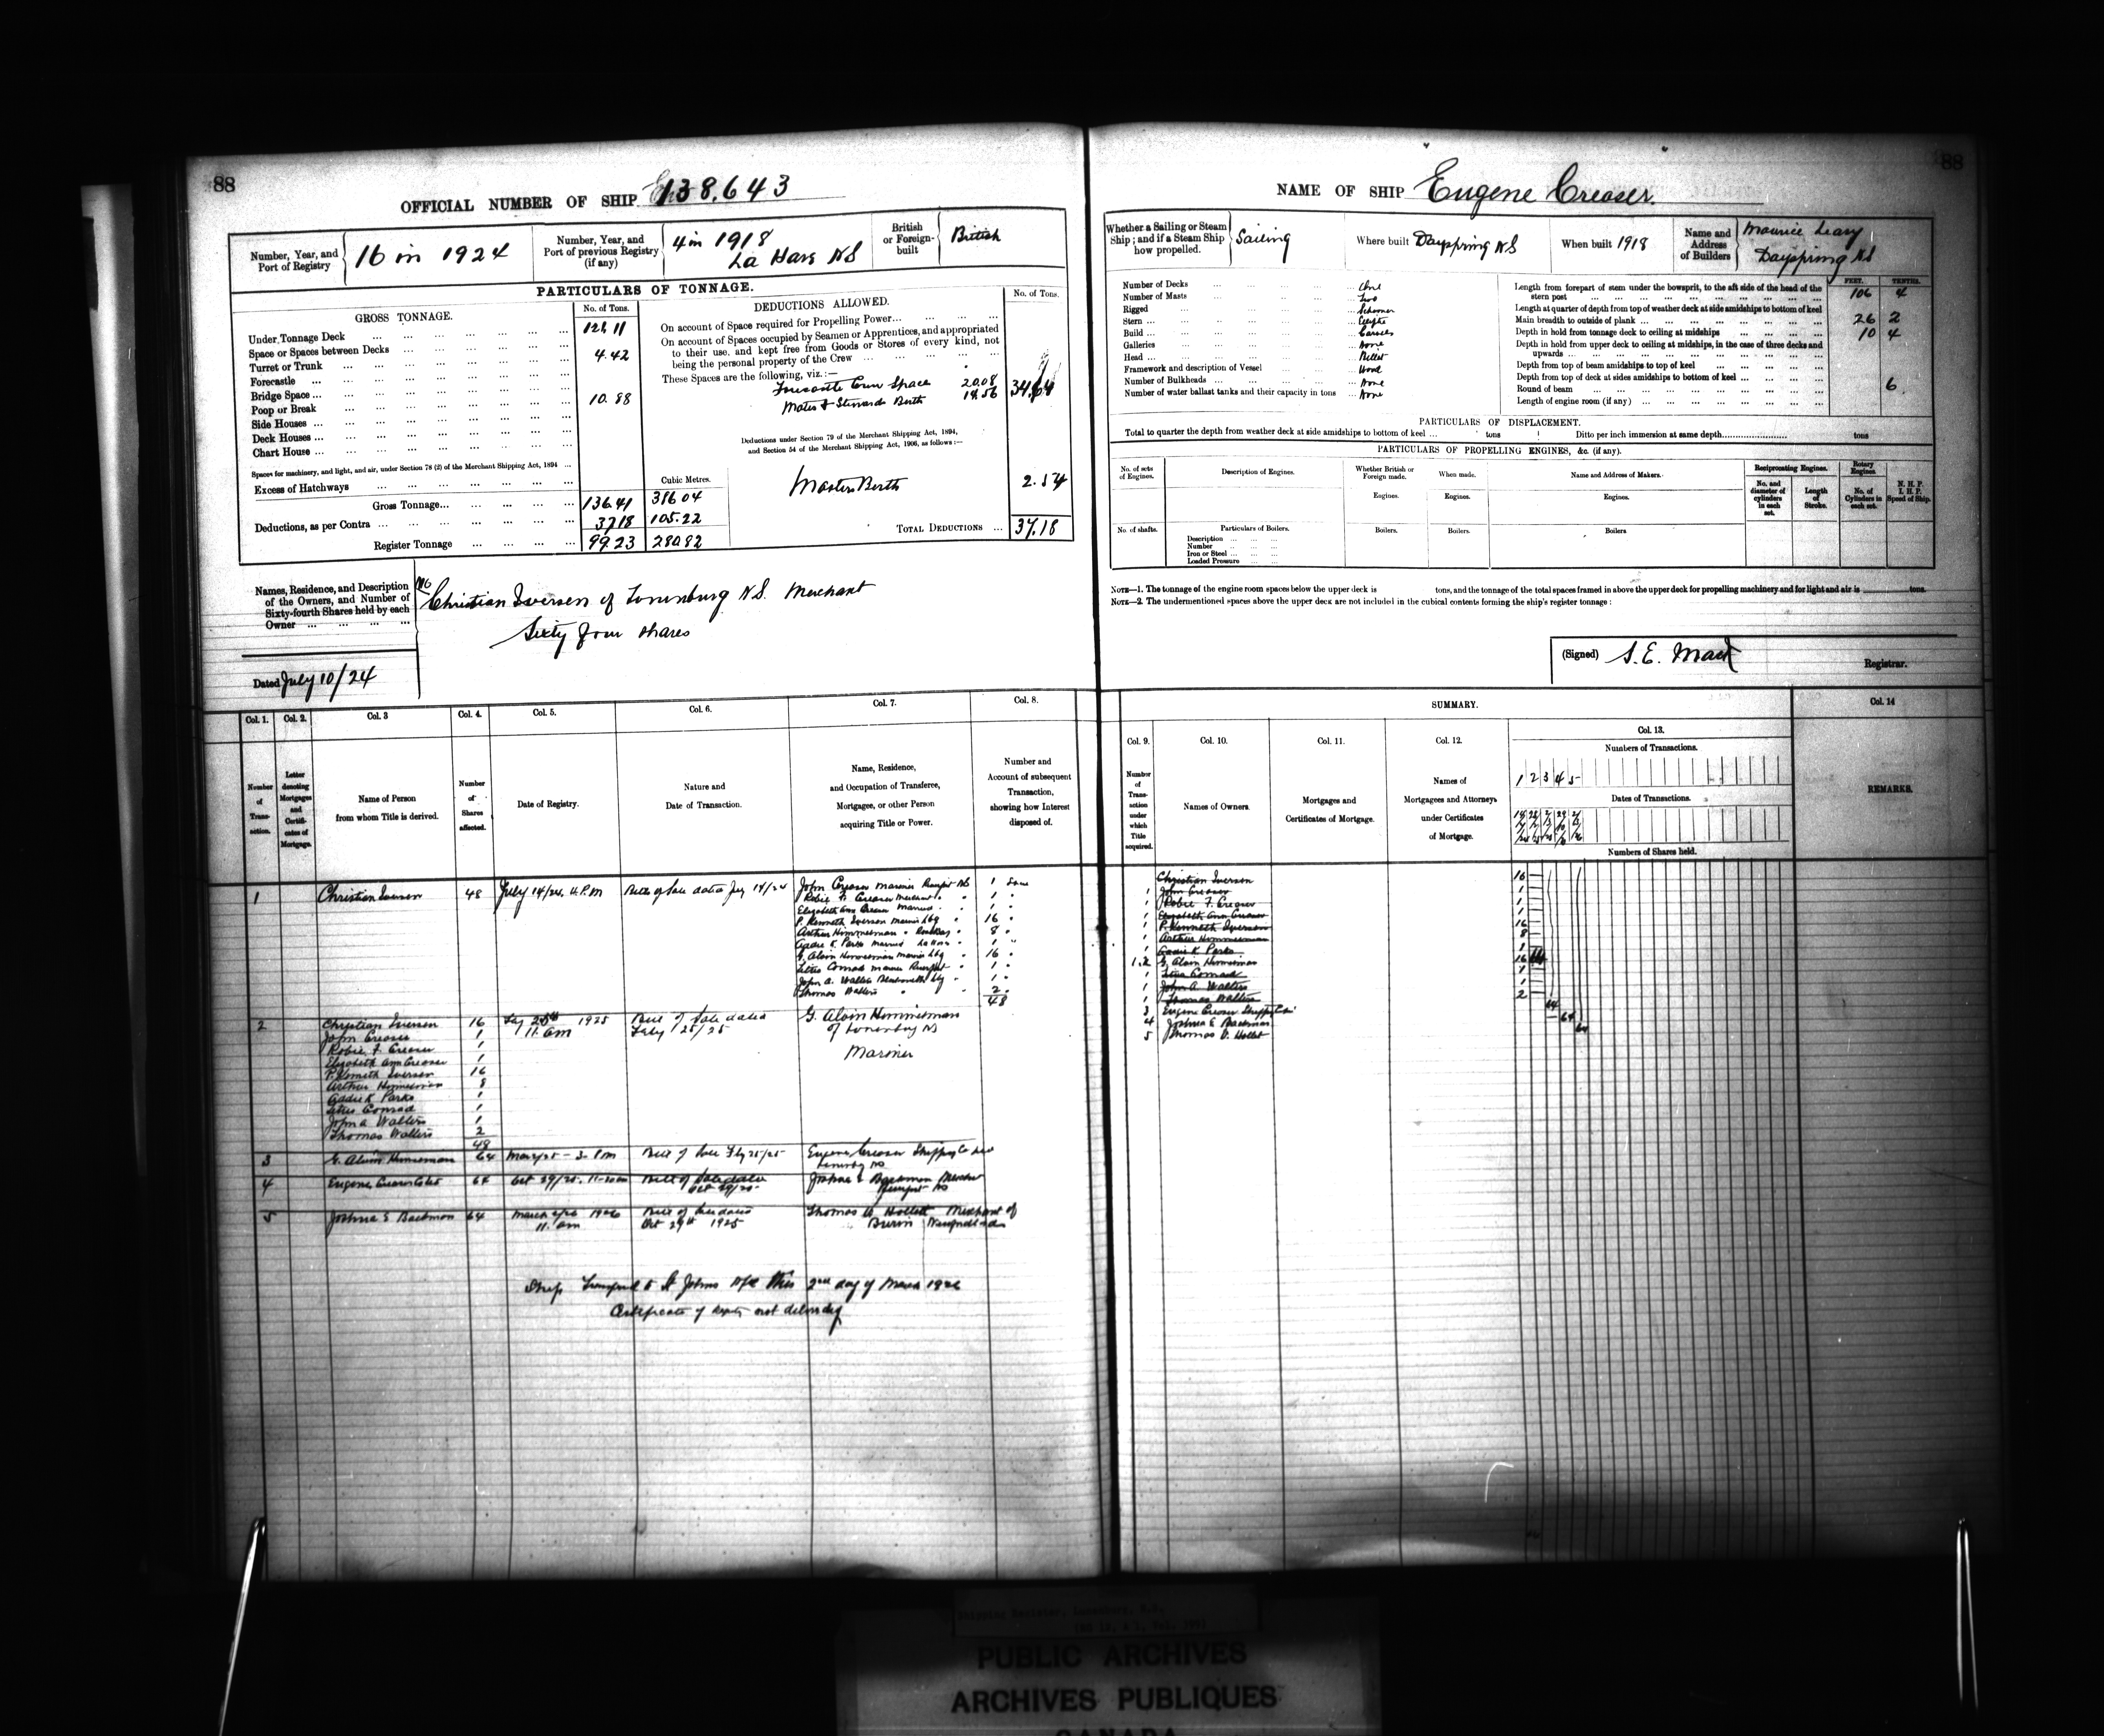 88
OFFICIAL NUMBER OF SHIP 138,643
Number, Year, and Port of Registry
16 in 1924
Number, Year, and Port of previous Registry (if any)
4 in 1918
La Have NS
British or Foreign-built
British
PARTICULARS OF TONNAGE.
GROSS TONNAGE.
No. of Tons.
DEDUCTIONS ALLOWED.
No. of Tons.
Under Tonnage Deck 121 11
Space or Spaces between Decks
Turret or Trunk 4.42
Forecastle
Bridge Space
Poop or Break 10.88
Side Houses
Deck Houses
Chart House
Spaces for machinery, and light, and air, under Section 78 (2) of the Merchant Shipping Act, 1894
Excess of Hatchways
Cubic Metres.
Gross Tonnage 136.41 386 04
Deductions, as per Contra 37 18 105.22
Register Tonnage 99.23 280.82
On account of Space required for Propelling Power
On account of Spaces occupied by Seamen or Apprentices, and appropriated
to their use, and kept free from Goods or Stores of every kind, not
being the personal property of the Crew
These Spaces are the following, viz.:—
Crew Space 20.08
Mates & Stewards Berth 14.56 34.64
Deductions under Section 79 of the Merchant Shipping Act, 1894,
and Section 54 of the Merchant Shipping Act, 1906, as follows:—
Masters Berth 2.54
TOTAL DEDUCTIONS 37.18
Names, Residence, and Description
of the Owners, and Number of
Sixty-fourth Shares held by each
Owner
Christian Iversen of Lunenburg N.S. Merchant
Sixty four shares
Dated July 10/24
Col. 1. Col. 2. Col. 3 Col. 4. Col. 5. Col. 6. Col. 7. Col. 8.
Number of Transaction.
Letter denoting Mortgages and Certificates of Mortgage.
Name of Person from whom Title is derived.
Number of Shares affected.
Date of Registry.
Nature and Date of Transaction.
Name, Residence, and Occupation of Transferee, Mortgagee, or other Person acquiring Title or Power.
Number and Account of subsequent Transaction, showing how Interest disposed of.
1 Christian Iversen 48 July 14/24. 4.P.M Bill of Sale dated July 14/24
John Creaser Mariner NS 1
Robie F. Creaser Merchant 1
Elizabeth Ann Creaser Married 1
P. Kenneth Iversen 16
Arthur Himmelman 8
Addie K Parks Married LaHave 1
G. Alvin Himmelman 16
Titus Conrad 1
John A. Walters Blacksmith 1
Thomas Walters 2
48
2 Christian Iversen 16 25th 1925 Bill of Sale dated G. Alvin Himmelman
John Creaser 1 11. am Feby 25/25 of Lunenburg NS
Robie F. Creaser 1 Mariner
Elizabeth Ann Creaser 1
P. Kenneth Iversen 16
Arthur Himmelman 8
Addie K Parks 1
Titus Conrad 1
John A Walters 1
Thomas Walters 2
48
3 G. Alvin Himmelman 64 Bill of Sale Feby 25/25 Eugene Creaser Shipping Co
4 64 Oct 29/25. Bill of Sale dated Joshua E Backman
Oct 29/25
5 Joshua E Backman 64 March 1926 Bill of Sale dated Thomas Hollett Merchant of
11. am Oct 29th 1925 Burin Newfoundland
Ship St Johns this 2nd day of March 1926
Certificate of not
88
NAME OF SHIP Eugene Creaser.
Whether a Sailing or Steam Ship; and if a Steam Ship how propelled.
Sailing
Where built Dayspring NS
When built 1918
Name and Address of Builders
Maurice Leary
Dayspring NS
Number of Decks One
Number of Masts Two
Rigged Schooner
Stern Elliptic
Build Carvel
Galleries None
Head Billet
Framework and description of Vessel Wood
Number of Bulkheads None
Number of water ballast tanks and their capacity in tons None
FEET. TENTHS.
Length from forepart of stem under the bowsprit, to the aft side of the head of the stern post 106 4
Length at quarter of depth from top of weather deck at side amidships to bottom of keel
Main breadth to outside of plank 26 2
Depth in hold from tonnage deck to ceiling at midships 10 4
Depth in hold from upper deck to ceiling at midships, in the case of three decks and upwards
Depth from top of beam amidships to top of keel
Depth from top of deck at sides amidships to bottom of keel
Round of beam 6
Length of engine room (if any)
PARTICULARS OF DISPLACEMENT.
Total to quarter the depth from weather deck at side amidships to bottom of keel tons Ditto per inch immersion at same depth tons
PARTICULARS OF PROPELLING ENGINES, &c. (if any).
No. of sets of Engines.
Description of Engines.
Whether British or Foreign made.
When made.
Name and Address of Makers.
Reciprocating Engines.
Rotary Engines.
N. H. P.
I. H. P.
Speed of Ship.
Engines. Engines. Engines.
No. and diameter of cylinders in each set.
Length of Stroke.
No. of Cylinders in each set.
No. of shafts.
Particulars of Boilers.
Boilers. Boilers. Boilers
Description
Number
Iron or Steel
Loaded Pressure
NOTE—1. The tonnage of the engine room spaces below the upper deck is tons, and the tonnage of the total spaces framed in above the upper deck for propelling machinery and for light and air is tons.
NOTE—2. The undermentioned spaces above the upper deck are not included in the cubical contents forming the ship's register tonnage:
(Signed) S. E. Mack
Registrar.
SUMMARY.
Col. 14
Col. 9. Col. 10. Col. 11. Col. 12. Col. 13.
Number of Transaction under which Title acquired.
Names of Owners.
Mortgages and Certificates of Mortgage.
Names of Mortgagees and Attorneys under Certificates of Mortgage.
Numbers of Transactions.
1 2 3 4 5
Dates of Transactions.
Numbers of Shares held.
REMARKS.
Christian Iversen 16
1 John Creaser 1
1 Robie F. Creaser 1
1 Elizabeth Ann Creaser 1
1 P. Kenneth Iversen 16
1 Arthur Himmelman 8
1 Addie K Parks 1
1.2 G. Alvin Himmelman 16
1 Titus Conrad 1
1 John A. Walters 1
1 Thomas Walters 2
3 Eugene Creaser Shipping Co 64
4 Joshua E Backman 64
5 Thomas Hollett 64
PUBLIC ARCHIVES
ARCHIVES PUBLIQUES
CANADA